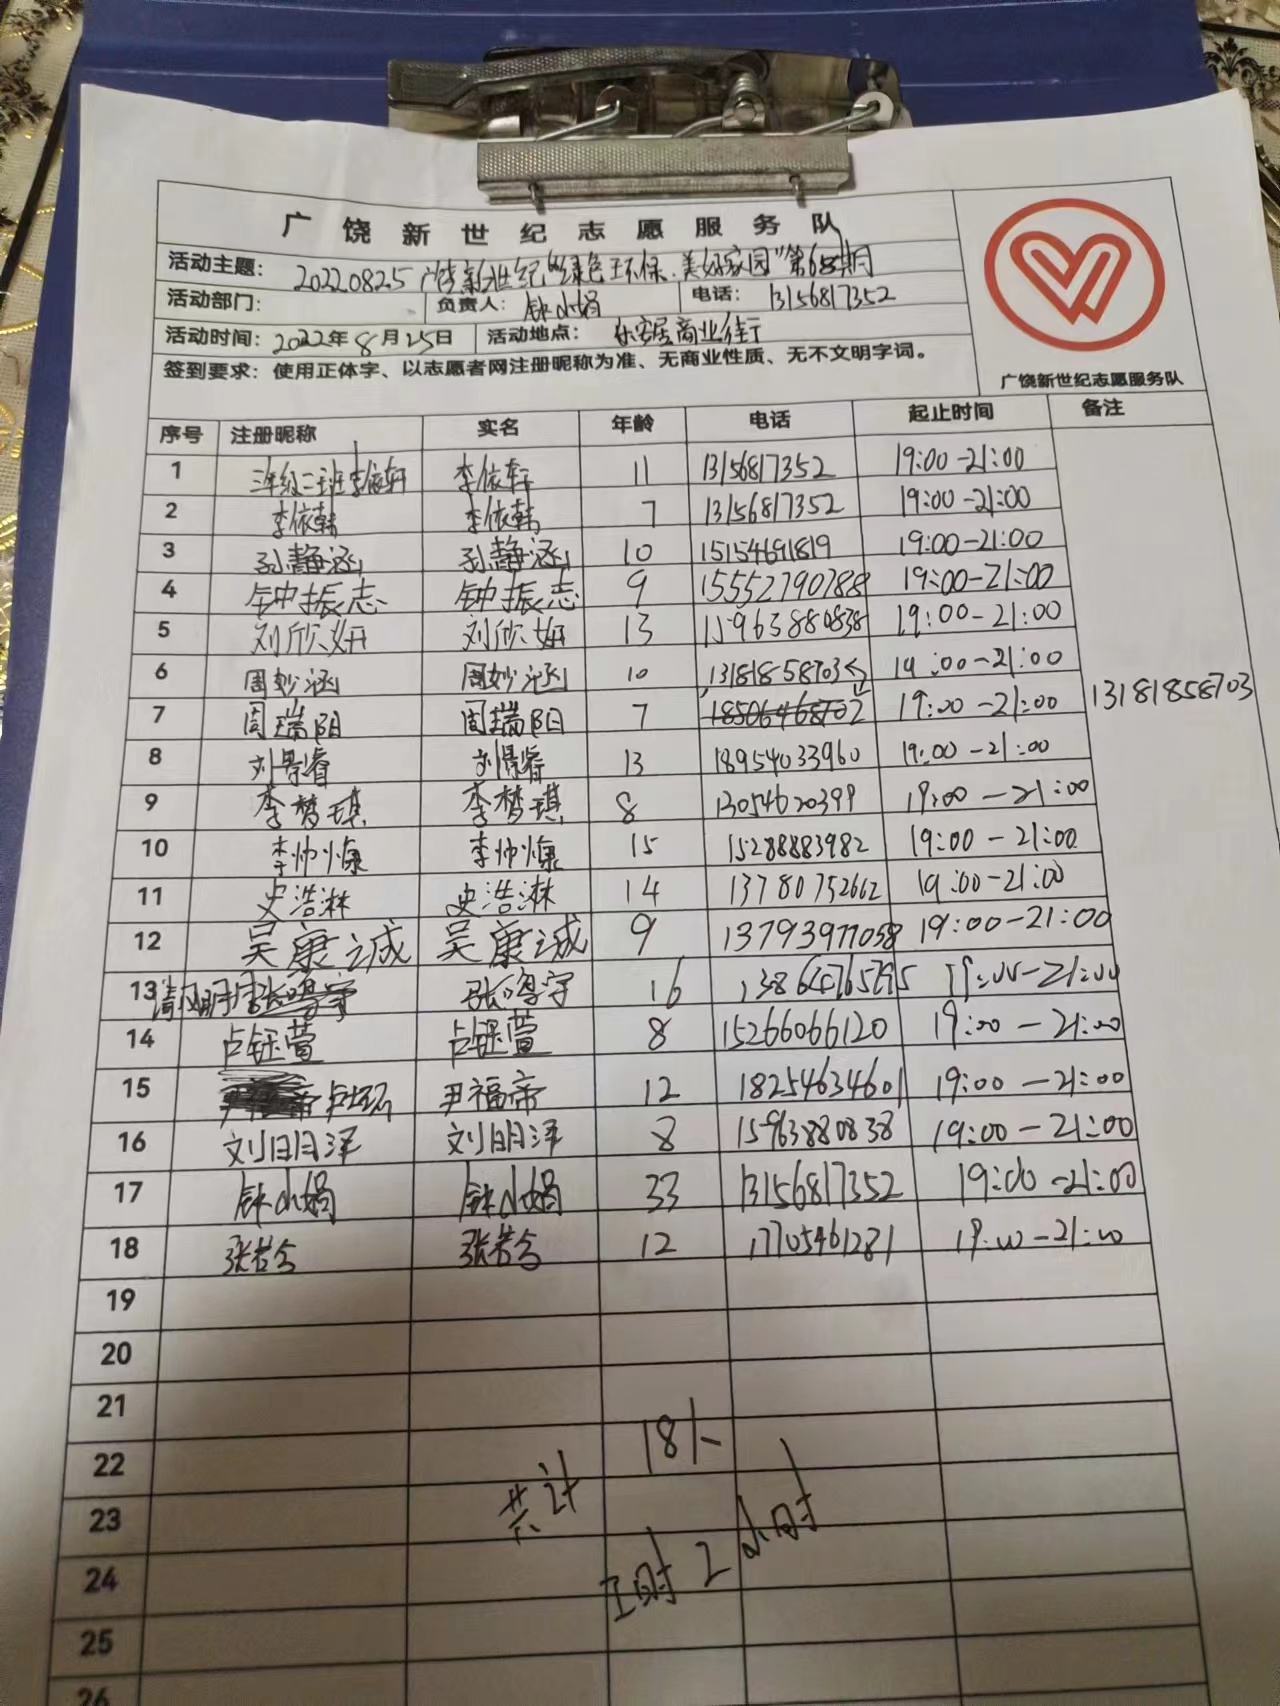 广饶新世纪志愿服务队
活动主题: 20220825广饶新世纪"绿色环保.美好家园"第68期
活动部门: 负责人: 钟小娟 电话: 13156817352
活动时间: 2022年8月25日 活动地点: 乐安居商业街
签到要求: 使用正体字、以志愿者网注册昵称为准、无商业性质、无不文明字词。
广饶新世纪志愿服务队
序号 注册昵称 实名 年龄 电话 起止时间 备注
1 三年级二班李依轩 李依轩 11 13156817352 19:00-21:00
2 李依韩 李依韩 7 13156817352 19:00-21:00
3 孙静涵 孙静涵 10 15154691819 19:00-21:00
4 钟振志 钟振志 9 15552790788 19:00-21:00
5 刘欣妍 刘欣妍 13 15963880838 19:00-21:00
6 周妙涵 周妙涵 10 13181858703 19:00-21:00
7 周瑞阳 周瑞阳 7 19:00-21:00 13181858703
8 刘景睿 刘景睿 13 18954033960 19:00-21:00
9 李梦琪 李梦琪 8 13054620399 19:00-21:00
10 李帅慷 李帅慷 15 15288883982 19:00-21:00
11 史浩淋 史浩淋 14 13780752662 19:00-21:00
12 吴康诚 吴康诚 9 13793977058 19:00-21:00
13 清风明月 张鸣宇 16 13864765795 19:00-21:00
14 卢钰萱 卢钰萱 8 15266066120 19:00-21:00
15 尹福帝 12 18254634601 19:00-21:00
16 刘明洋 刘明洋 8 15963880838 19:00-21:00
17 钟小娟 钟小娟 33 13156817352 19:00-21:00
18 张若兮 张若兮 12 17705461281 19:00-21:00
19
20
21
22
23
24
25
26
共计 18人
工时 2小时